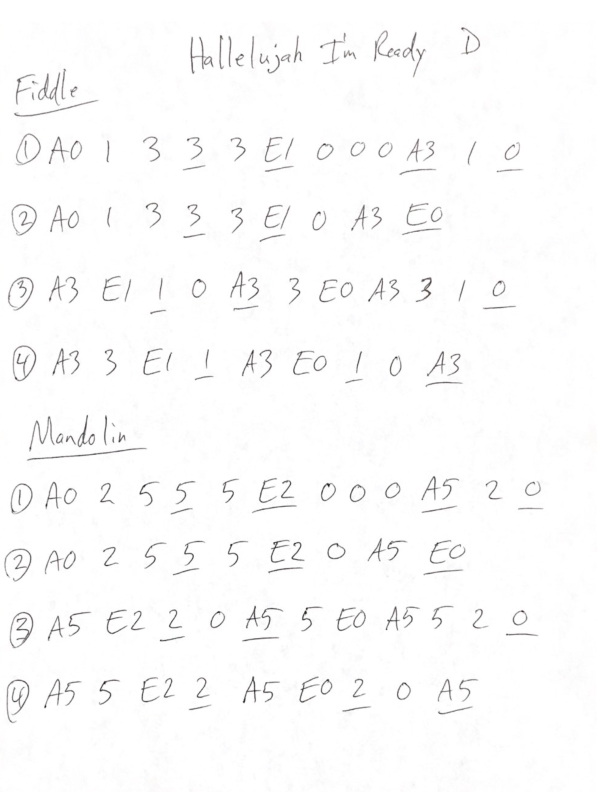 Hallelujah I'm Ready D
Fiddle
① A0 1 3 3 3 E1 0 0 0 A3 1 0
② A0 1 3 3 3 E1 0 A3 E0
③ A3 E1 1 0 A3 3 E0 A3 3 1 0
④ A3 3 E1 1 A3 E0 1 0 A3
Mandolin
① A0 2 5 5 5 E2 0 0 0 A5 2 0
② A0 2 5 5 5 E2 0 A5 E0
③ A5 E2 2 0 A5 5 E0 A5 5 2 0
④ A5 5 E2 2 A5 E0 2 0 A5